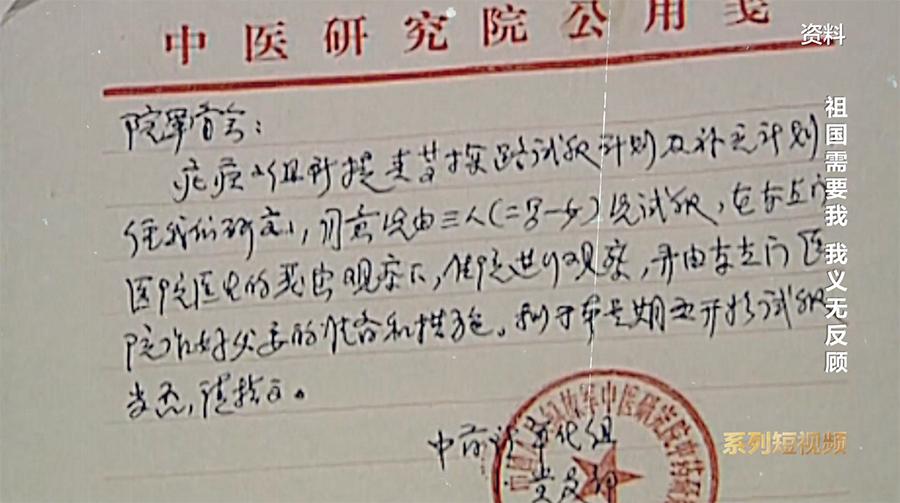 中医研究院公用笺
资料
院军管会：
疟疾小组所提青蒿探路试服计划及补充计划
经我们研究，同意先由三人（二男一女）先试服，在东直门
医院医生的严密观察下，住院进行观察，并由东直门医
院作好必要的准备和措施。拟于本星期五开始试服
当否，请指示。
中药所革
中医研究院中药
祖国需要我 我义无反顾
系列短视频